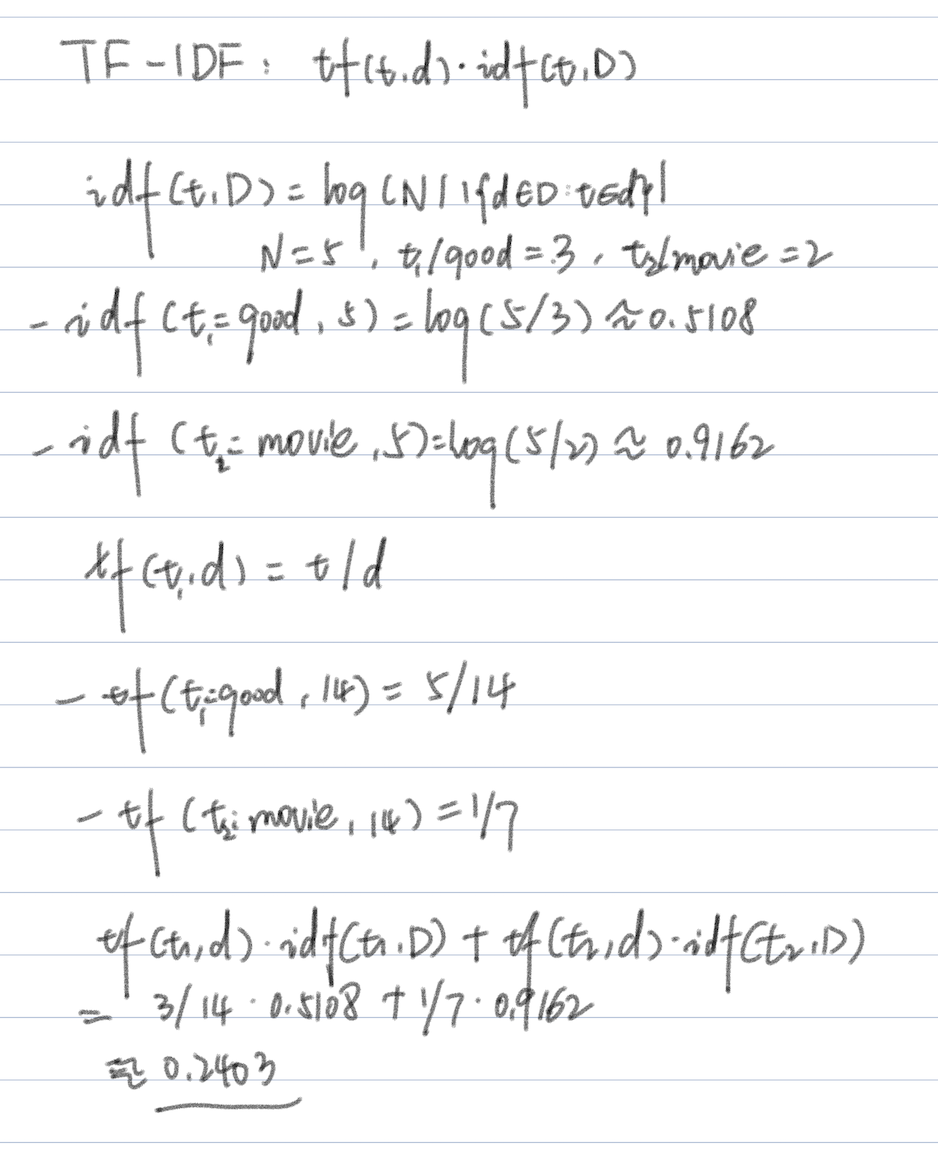 TF-IDF: tf(t,d)·idf(t,D)
idf(t,D) = log(N/|{d∈D:t∈d}|
N=5, t₁/good=3, t₂/movie=2
- idf(t₁=good, 5) = log(5/3) ≈ 0.5108
- idf (t₂=movie, 5)=log(5/2) ≈ 0.9162
tf(t₁,d) = t/d
- tf(t₁=good, 14) = 5/14
- tf (t₂:movie, 14) = 1/7
tf(t₁,d)·idf(t₁,D) + tf(t₂,d)·idf(t₂,D)
= 3/14 · 0.5108 + 1/7 · 0.9162
≈ 0.2403